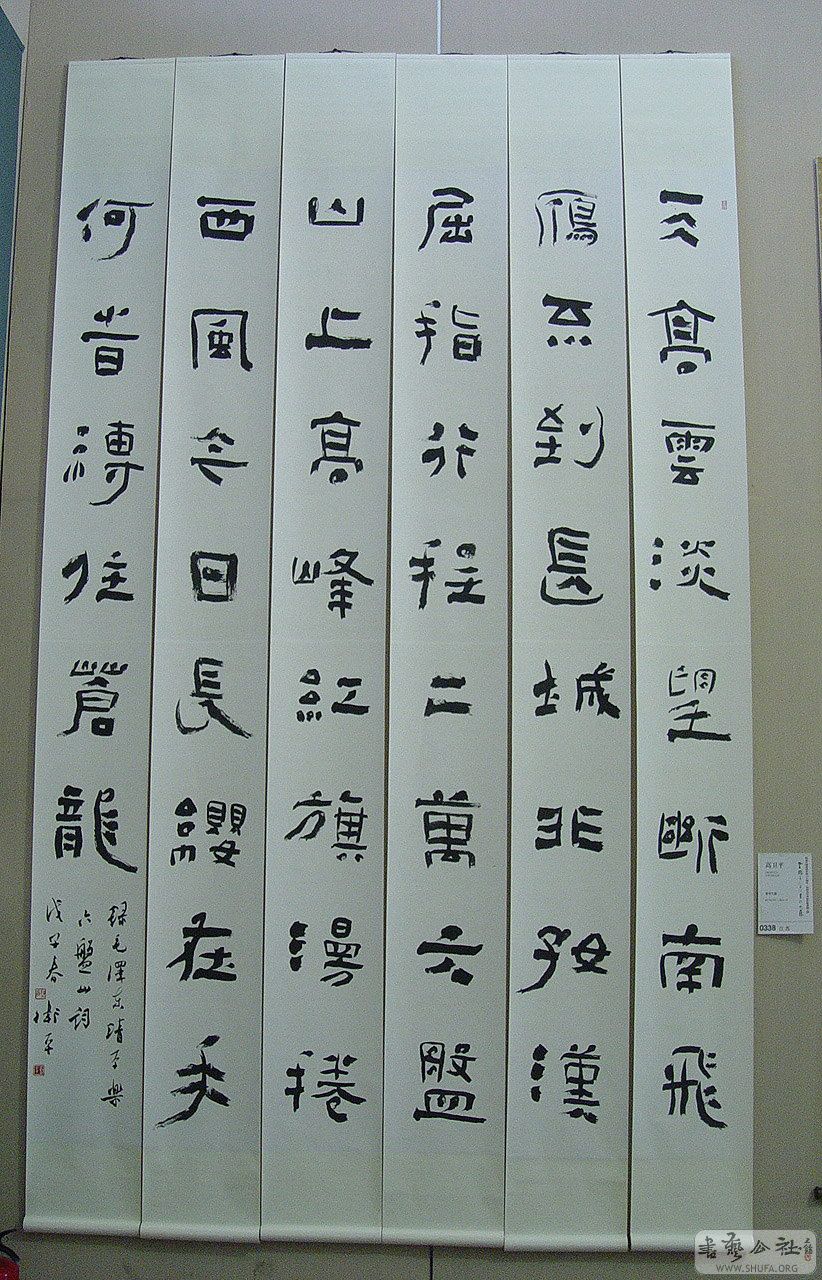 天高雲淡望斷南飛
鴈不到長城非好漢
屈指行程二萬六盤
山上高峰紅旗漫捲
西風今日長纓在手
何旹縛住蒼龍
錄毛澤東清平樂
六盤山詞
戊子春衛平
高卫平
0338 江苏
書藝公社
WWW.SHUFA.ORG